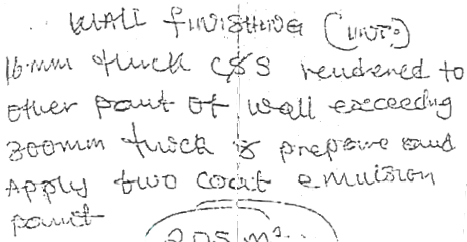 WALL FINISHING (INT:)
16mm thick C&S rendered to
other part of wall exceeding
300mm thick & prepare and
Apply two coat emulsion
paint
205m²